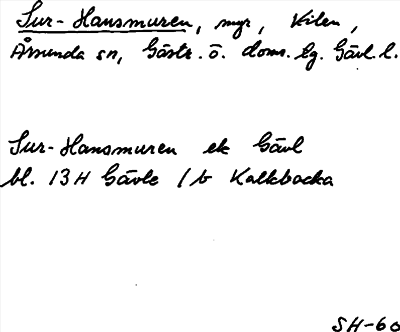 Sur-Hansmuren, myr, Kilen,
Årsunda sn, Gästr. ö. doms. lg. Gävl. l.
Sur-Hansmuren ek Gävl
bl. 13H Gävle /b Kalkbacka
SH-60